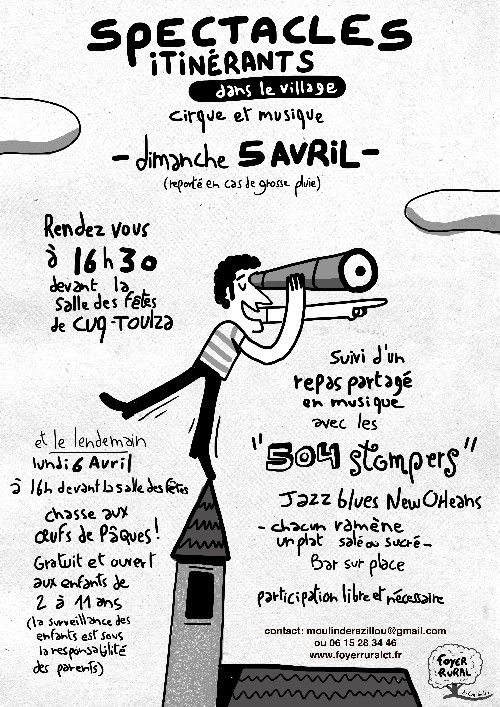 SPECTACLES
iTiNÉRANTS
dans le village
cirque et musique
- dimanche 5 AVRiL -
(reporté en cas de grosse pluie)
Rendez vous
à 16h30
devant la
salle des fêtes
de CUQ-TOULZA
suivi d'un
repas partagé
en musique
avec les
"504 stompers"
Jazz blues New Orleans
- chacun ramène
un plat salé ou sucré -
Bar sur place
participation libre et nécessaire
et le lendemain
lundi 6 Avril
à 16h devant la salle des fêtes
chasse aux
œufs de Pâques!
Gratuit et ouvert
aux enfants de
2 à 11 ans
(la surveillance des
enfants est sous
la responsabilité
des parents)
contact: moulinderazillou@gmail.com
ou 06 15 28 34 46
www.foyerruralct.fr
FOYER
RURAL